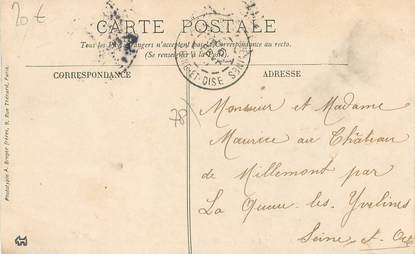 20 €
CARTE POSTALE
Tous les Pays étrangers n'acceptent pas la Correspondance au recto.
(Se renseigner à la Poste).
CORRESPONDANCE
ADRESSE
ET-OISE
LINES
78
Monsieur et Madame
Maurice au Château
de Millemont par
La Queue-les-Yvelines
Seine-et-Oise
Phototypie A. Breger frères, 9, Rue Thénard, Paris.